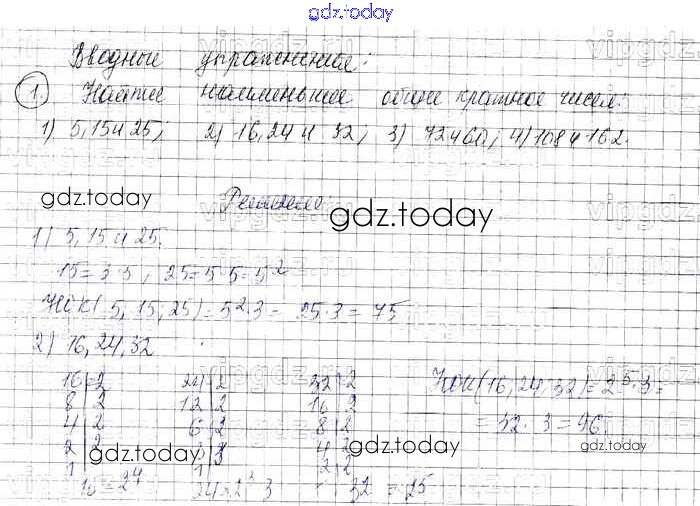 gdz.today
Вводные упражнения:
1. Найти наименьшее общее кратное чисел:
1) 5, 15 и 25; 2) 16, 24 и 32; 3) 72 и 60; 4) 108 и 162.
Решение
gdz.today
gdz.today
1) 5, 15 и 25.
15 = 3·5, 25 = 5·5 = 5²
НОК(5, 15, 25) = 5²·3 = 25·3 = 75
2) 16, 24, 32
16 | 2 24 | 2 32 | 2 НОК(16, 24, 32) = 2⁵·3 =
8 | 2 12 | 2 16 | 2
4 | 2 6 | 2 8 | 2 = 32·3 = 96.
2 | 2 3 | 3 4 | 2
gdz.today gdz.today gdz.today
1 | 1 | 2 | 2
16 = 2⁴ 24 = 2³ 3 32 = 2⁵